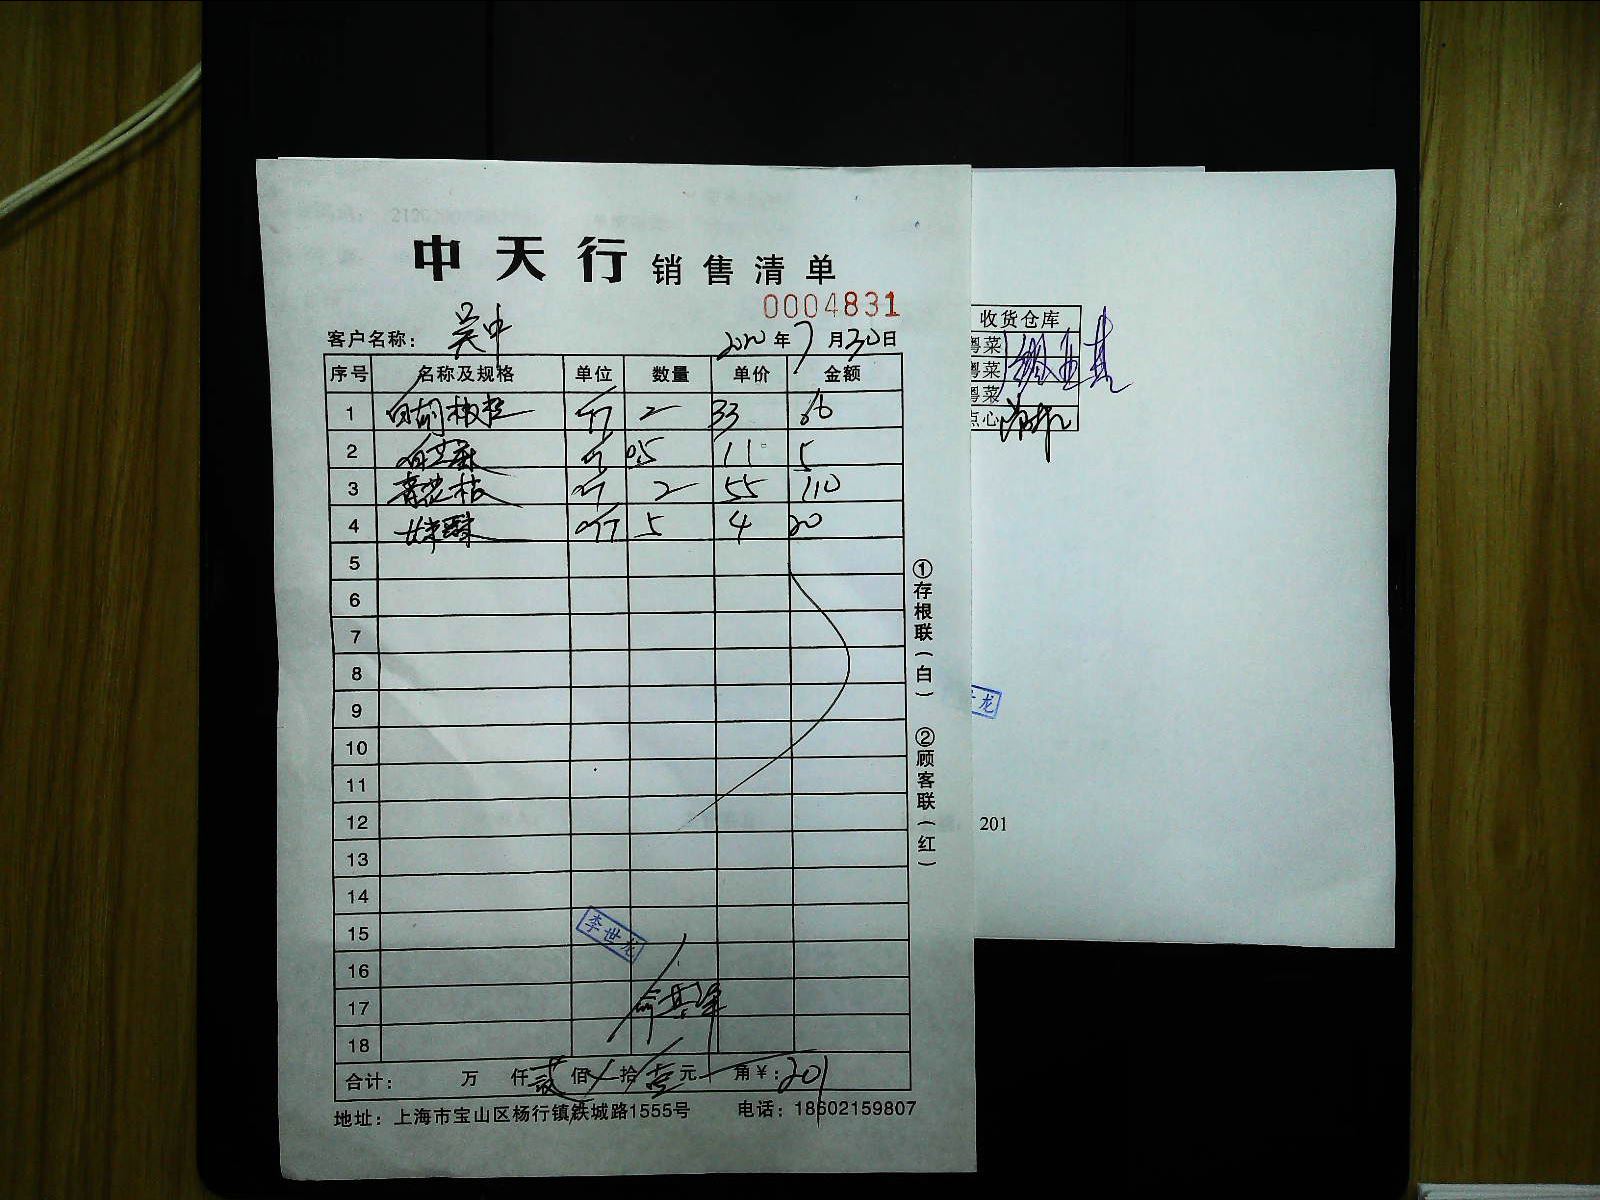 中天行 销售清单
0004831
客户名称: 吴中 2020年7月30日
序号 名称及规格 单位 数量 单价 金额
1 白胡椒粒 斤 2 33 66
2 白芝麻 斤 0.5 11 5
3 青花椒 斤 2 55 110
4 斤 5 4 20
5
6
7
8
9
10
11
12
13
14
15
16
17
18
李世龙
合计: 万 仟 贰 佰 拾 壹 元 角 ¥: 201
地址: 上海市宝山区杨行镇铁城路1555号 电话: 18602159807
①存根联(白) ②顾客联(红)
收货仓库
粤菜
粤菜
粤菜
点心
龙
201